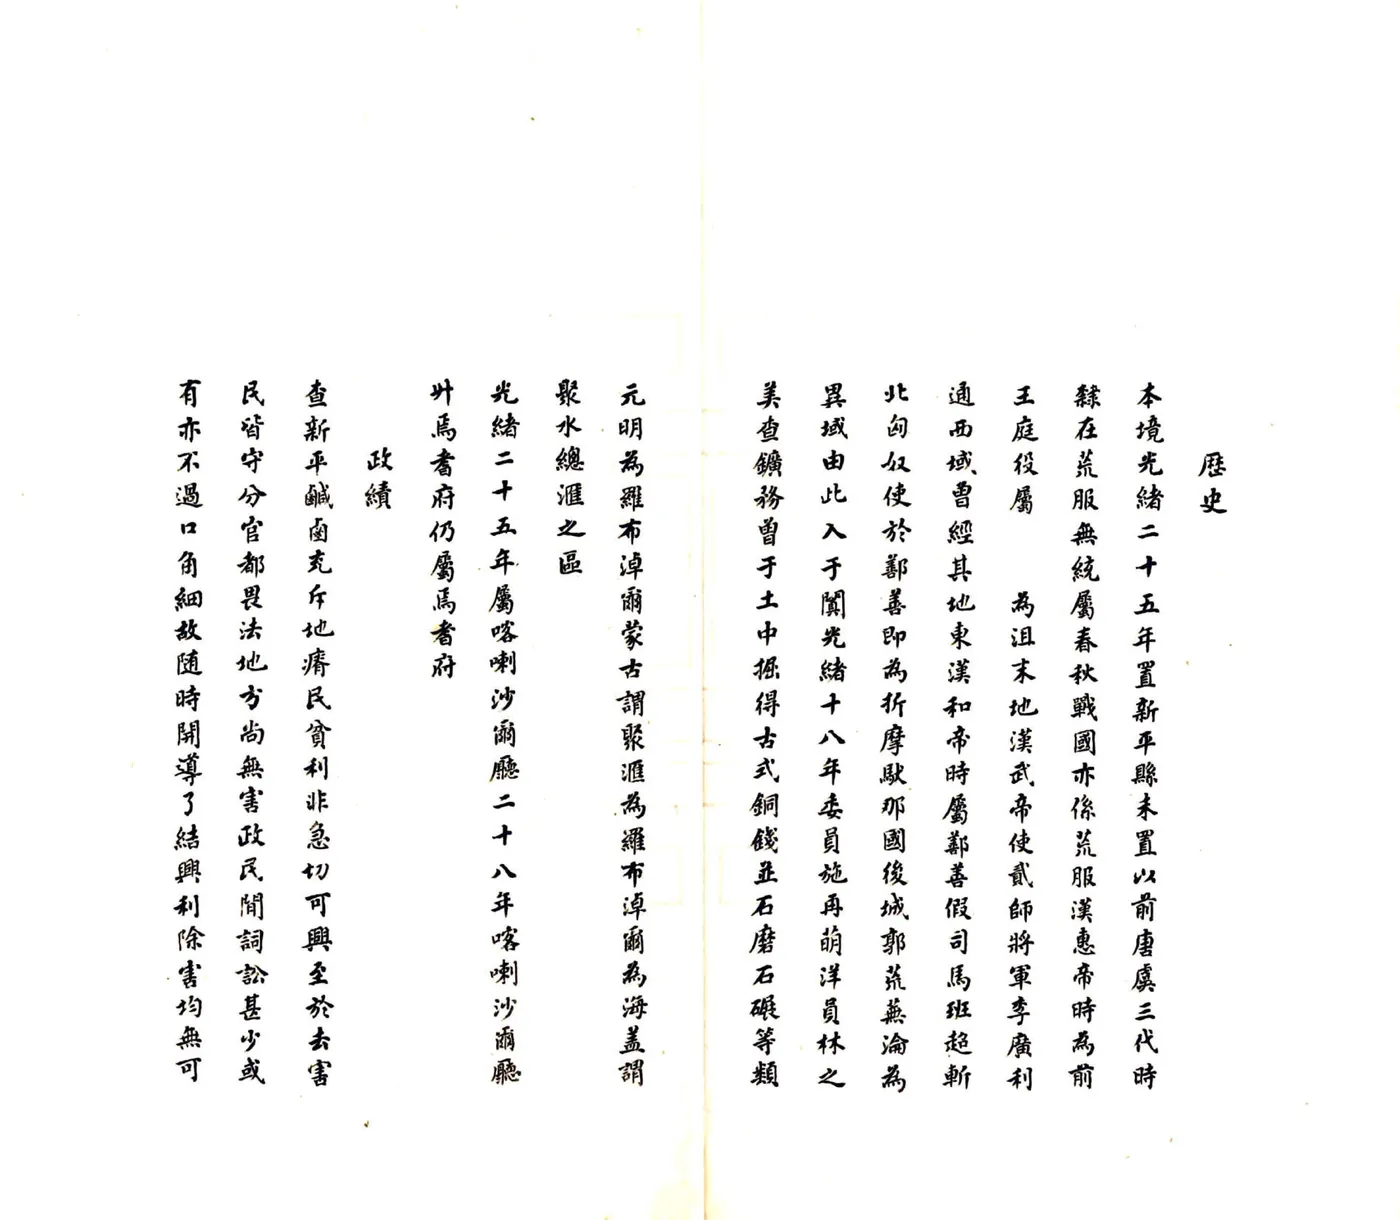 歷史
本境光緒二十五年置新平縣未置以前唐虞三代時
隸在荒服無統屬春秋戰國亦係荒服漢惠帝時為前
王庭役屬　為沮末地漢武帝使貳師將軍李廣利
通西域曾經其地東漢和帝時屬鄯善假司馬班超斬
北匈奴使於鄯善即為折摩馱那國後城郭荒蕪淪為
異域由此入于闐光緒十八年委員施再萌洋員林之
美查鑛務曾于土中掘得古式銅錢並石磨石碾等類
元明為羅布淖爾蒙古謂聚滙為羅布淖爾為海盖謂
聚水總滙之區
光緒二十五年屬喀喇沙爾廳二十八年喀喇沙爾廳
升焉耆府仍屬焉耆府
政績
查新平鹹鹵充斥地瘠民貧利非急切可興至於去害
民皆守分官都畏法地方尚無害政民間詞訟甚少或
有亦不過口角細故随時開導了結興利除害均無可